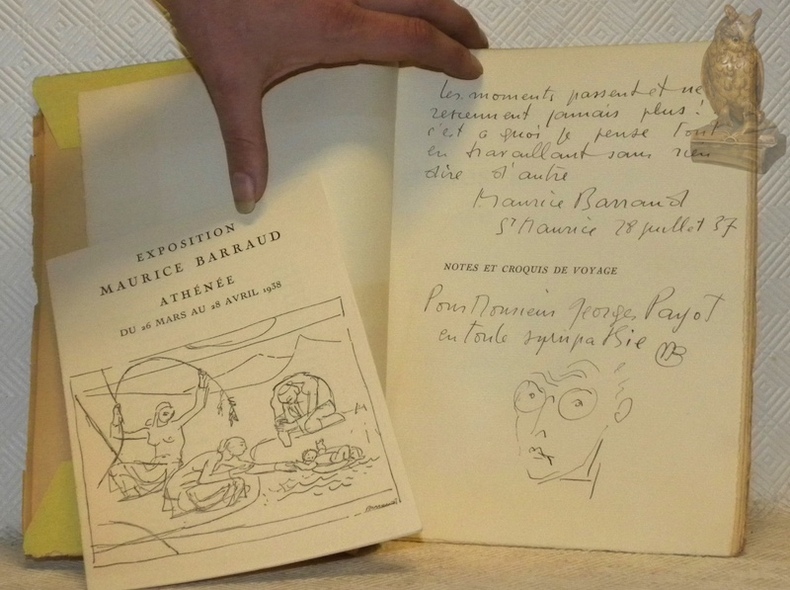 EXPOSITION
MAURICE BARRAUD
ATHÉNÉE
DU 26 MARS AU 28 AVRIL 1938
Les moments passent et ne
reviennent jamais plus!
c'est à quoi je pense tout
en travaillant sans rien
dire d'autre
Maurice Barraud
St Maurice 28 juillet 37
NOTES ET CROQUIS DE VOYAGE
Pour Monsieur Georges Payot
en toute sympathie MB